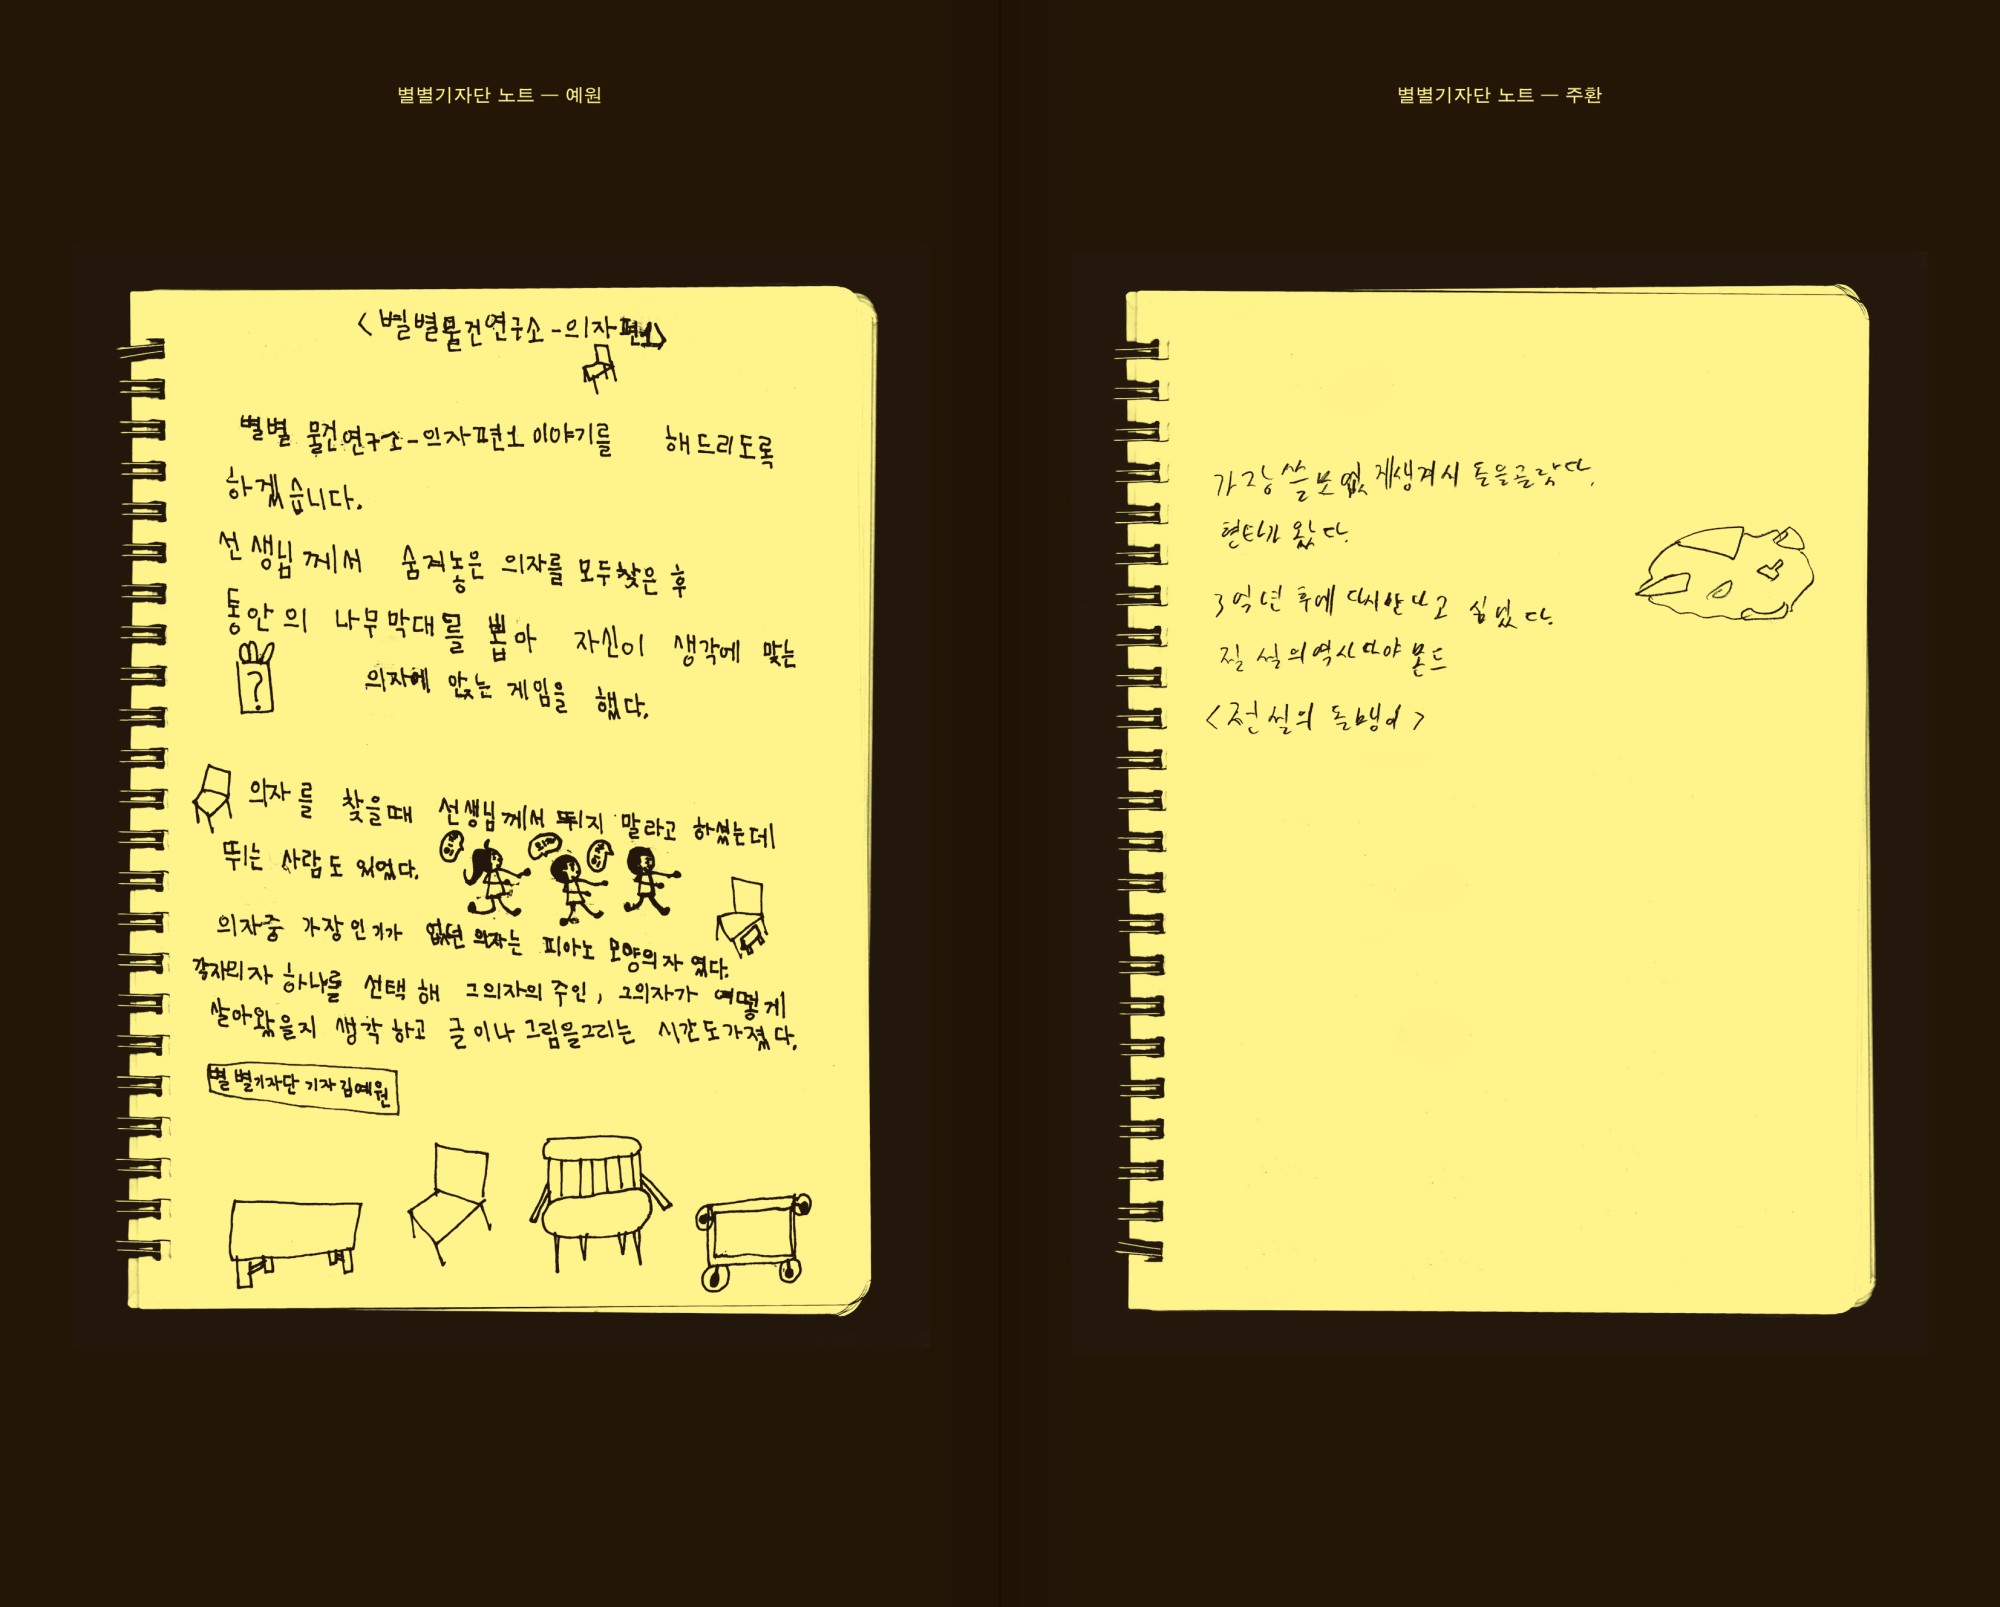 별별기자단 노트 — 예원
<별별물건연구소-의자편1>
별별 물건연구소-의자편1 이야기를 해드리도록
하겠습니다.
선생님께서 숨겨놓은 의자를 모두찾은 후
통안의 나무막대를 뽑아 자신이 생각에 맞는
?
의자에 앉는 게임을 했다.
의자를 찾을때 선생님께서 뛰지 말라고 하셨는데
뛰는 사람도 있었다.
의자중 가장인기가 없던 의자는 피아노 모양의자 였다.
각자의자 하나를 선택해 그의자의 주인, 그의자가 어떻게
살아왔을지 생각하고 글이나 그림을그리는 시간도가졌다.
별별기자단 기자김예원
별별기자단 노트 — 주환
가장쓸모없 재생겨서 돌을골랐다.
현타가 왔다.
3억년 후에 다시한다고 싶었다.
의역사다야몬드
<전설의 돌맹이>